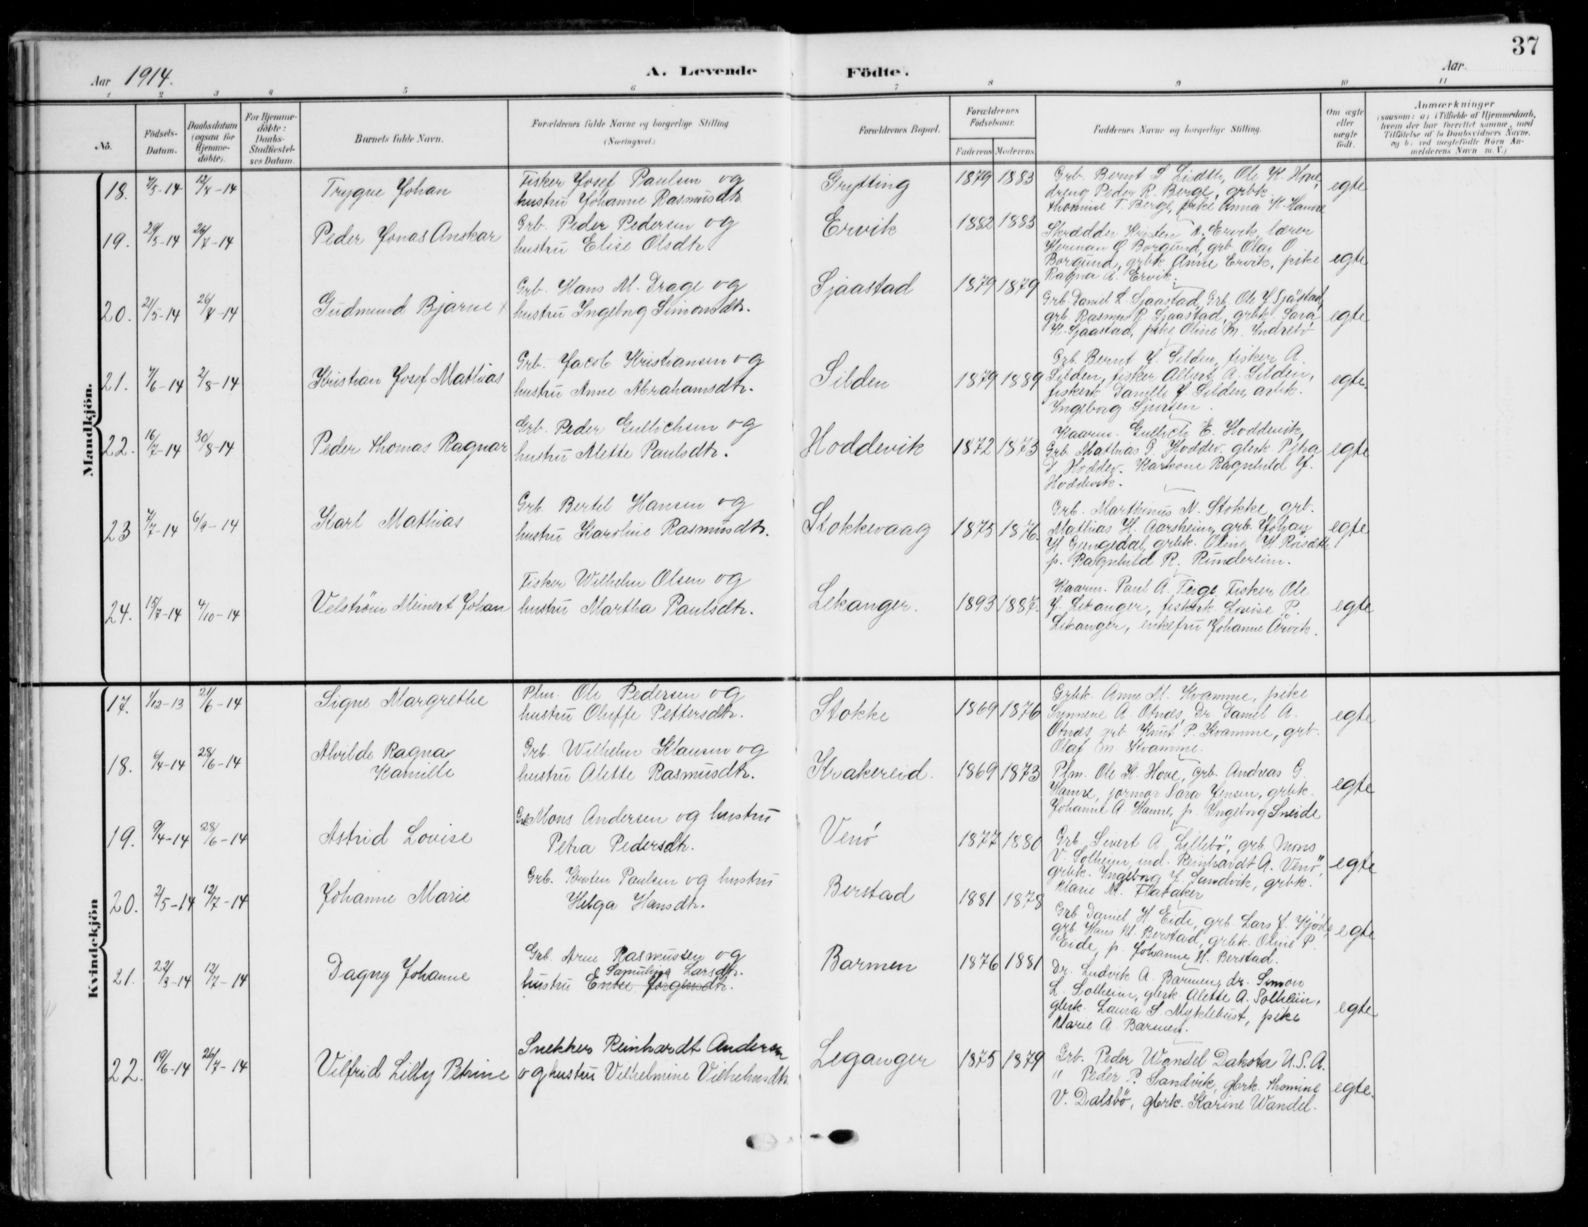 37
Aar 1914.
A. Levende
Födte.
Aar.
1 2 3 4 5 6 7 8 9 10 11
No.
Födsels-
Datum.
Daabsdatum
(ogsaa for
Hjemme-
döbte).
For Hjemme-
döbte:
Daabs-
Stadfæstel-
ses Datum.
Barnets fulde Navn.
Forældrenes fulde Navne og borgerlige Stilling
(Næringsvei.)
Forældrenes Bopæl.
Forældrenes
Födselsaar.
Faderens. Moderens.
Faddernes Navne og borgerlig Stilling.
Om ægte
eller
uægte
født.
Anmærkninger
Mandkjön.
18. 12/4-14
Trygve Johan
Fisker Josef Paulsen og
hustru Johanne Rasmusdtr.
Grytting
1879 1883
Grb. Bernt Ole K Hove,
dreng Peder R. Berge, grbk.
Thomine T. Berge, pike Anna K. Hamre
egte
19. 29/5-14 26/7-14
Peder Jonas Anskar
Grb. Peder Pedersen og
hustru Elise Olsdtr.
Ervik
1882 1883
Skrædder Ervik, lærer
Herman O Borgund, grb. Olai O
Borgund, grbk. Anne Ervik, pike
Ragna A. Ervik.
egte
20. 21/5-14 26/7-14
Gudmund Bjarne
Grb. Hans M. Drage og
hustru Ingebrg Simonsdtr.
Sjaastad
1879 1879
Grb. Daniel L. Sjaastad, Grb. Ole J. Sjåstad,
grb. Rasmus R. Sjaastad, grbk. Sara
K. Sjaastad, pike Oline M. Indrebö
egte
21. 7/6-14 2/8-14
Kristian Josef Mathias
Grb. Jacob Kristiansen og
hustru Anne Abrahamsdtr.
Silden
1879 1889
Grb. Bernt J. Silden, fisker A.
Silden, fisker Albert A. Silden,
fiskerk Danille J. Silden,
Ingeborg
egte
22. 16/7-14 30/8-14
Peder Thomas Ragnar
Grb. Peder Gullichsen og
hustru Alette Paulsdtr.
Hoddevik
1872 1873
Kaarm. Gullich E. Hoddevik,
Grb. Mathias P. Hoddev. glerk Petra
Hoddev. Karsone Ragnhild
Hoddevik.
egte
23 7/7-14 6/9-14
Karl Mathias
Grb. Bertel Hansen og
hustru Karoline Rasmusdtr.
Stokkevaag
1875 1876.
Grb. Marthinus N. Stokke, grb.
Mathias H. Aarsheim, grb. Johan
H. Gangsdal, grbk. Oline K.
p. Ragnhild R. Rundereim.
egte
24. 15/7-14 4/10-14
Velström Meinert Johan
Fisker Wilhelm Olsen og
hustru Martha Paulsdtr.
Lekanger.
1893 1887.
Kaarm. Paul A. Fisker Ole
J. Lekanger, fiskerk Lovise P.
Lekanger, enkefru Johanne Årvik.
egte
Kvindekjön
17. 1/12-13 21/6-14
Signe Margrethe
Plm. Ole Pedersen og
hustru Oluffe Pettersdtr.
Stokke
1869 1876
Grbk. Anne M. Kvamme, pike
Synneve A. Otnes, Dr. Daniel A.
Otnes, grb Knut P. Kvamme, grb.
Olaf En Kvamme.
egte
18. 28/6-14
Alvilde Ragna
Kamille
Grb. Wilhelm Klausen og
hustru Alette Rasmusdtr.
Krakereid.
1869 1873
Plm. Ole K. Hove, Grb. Andreas G.
Hamre, jormor Sara Jensen, grbk.
Johanne A Hamre, p. Ingeborg Sneide
egte
19. 9/4-14 28/6-14
Astrid Lovise
Grb Mons Andersen og hustru
Petra Pedersdtr.
Venö
1877 1880
Grb. Sivert A. Lillebö, grb. Mons
V. Solheim, ind. Reinhardt A. Venö,
grbk. Ingeborg J. Sandvik, grbk.
Marie M. Flataker
egte
20. 2/5-14 12/7-14
Johanne Marie
Grb. Karsten Paulsen og hustru
Helga Hansdtr.
Berstad
1881 1878
Grb Daniel H Eide, grb Lars J.
grb Hans M. Berstad, grbk. Oline P.
Eide, p. Johanne H. Berstad.
egte
21. 22/3-14 12/7-14
Dagny Johanne
Grb. Arne Rasmussen og
Samuline Larsdtr.
hustru
Barmen
1876 1881
Dr. Ludvik A. Barmen, dr. Simon
L. Solheim, glerk. Alette A. Solheim,
glerk. Laura S Myklebust, pike
Marie A Barmen.
egte
22. 19/6-14 26/7-14
Vilfrid Lilly Petrine
Snekker Reinhardt Andersen
og hustru Vilhelmine Vilhelmsdtr.
Leganger
1875 1879
Grb. Peder Wandel Dakota U.S.A.
" Peder P. Sandvik, glerk. Thomine
V. Dalsbö, glerk. Karine Wandel.
egte.